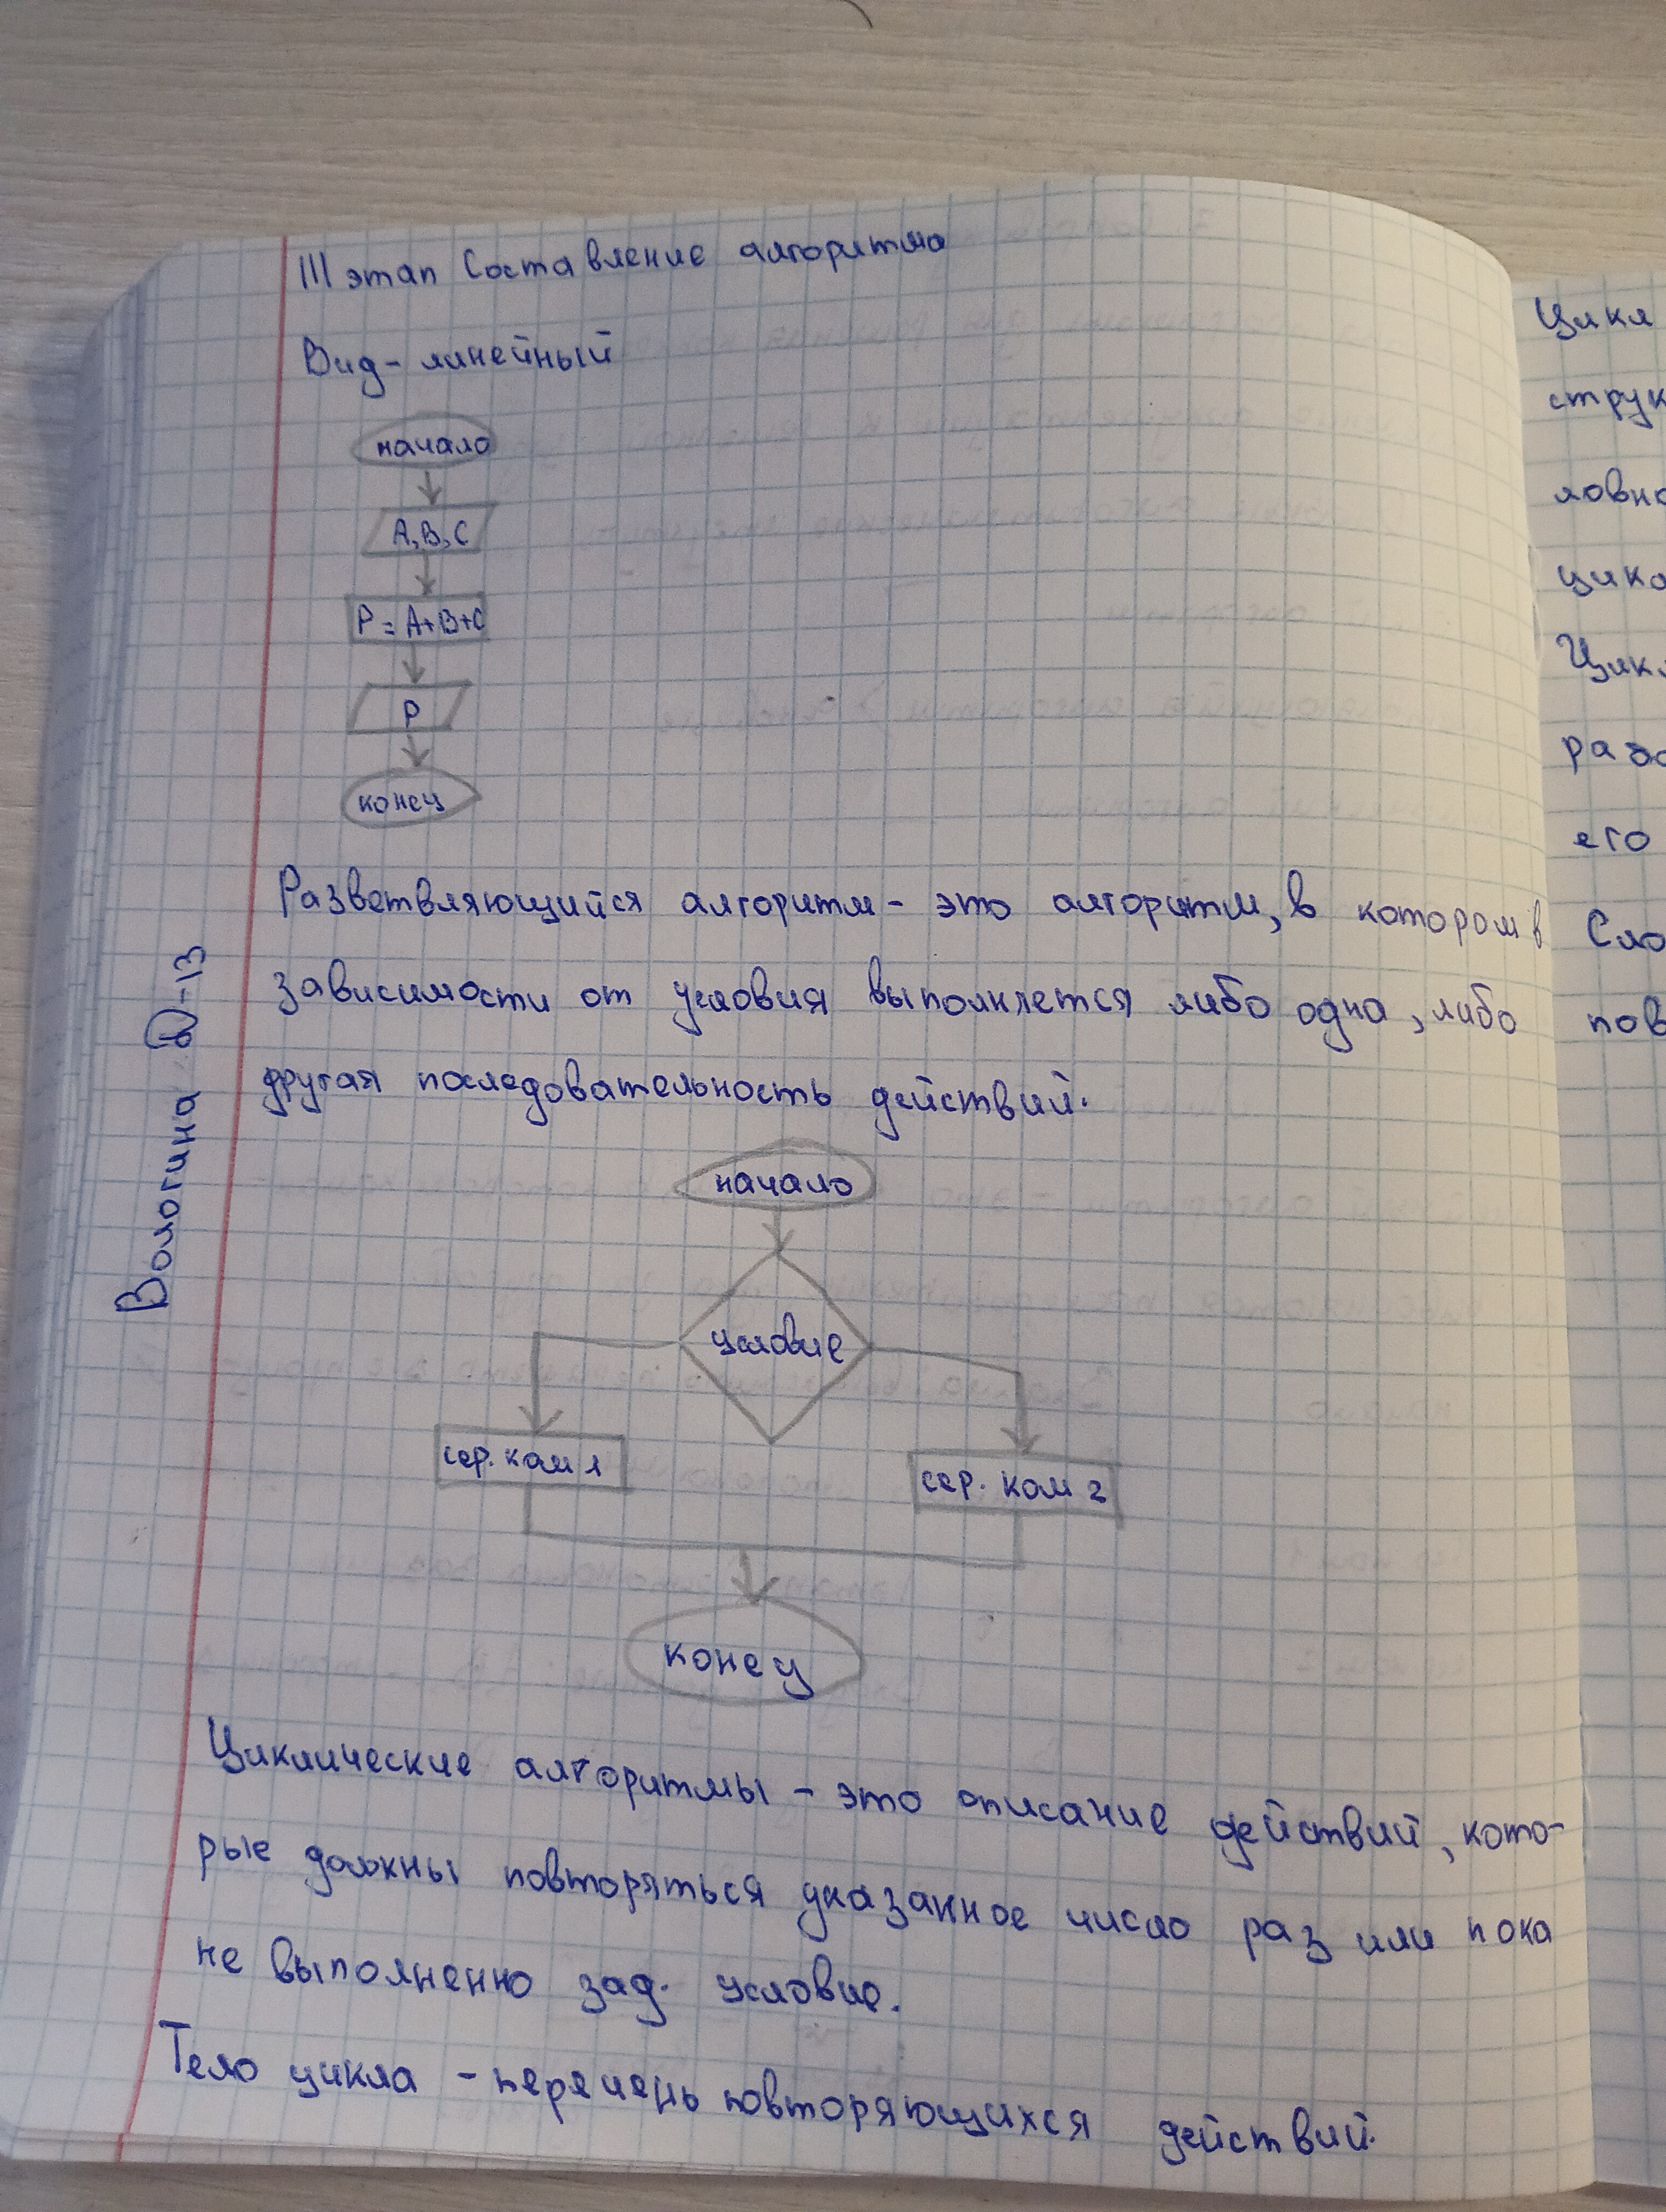 III этап Составление алгоритма
Вид - линейный
начало
A, B, C
P = A+B+C
P
конец
Разветвляющийся алгоритм - это алгоритм, в котором в
зависимости от условия выполняется либо одна, либо
другая последовательность действий.
начало
условие
сер. ком 1
сер. ком 2
конец
Циклические алгоритмы - это описание действий, кото-
рые должны повторяться указанное число раз или пока
не выполненно зад. условие.
Тело цикла - перечень повторяющихся действий.
Вологина
-13
Цикл
струк
ловно
его
Сло
пов